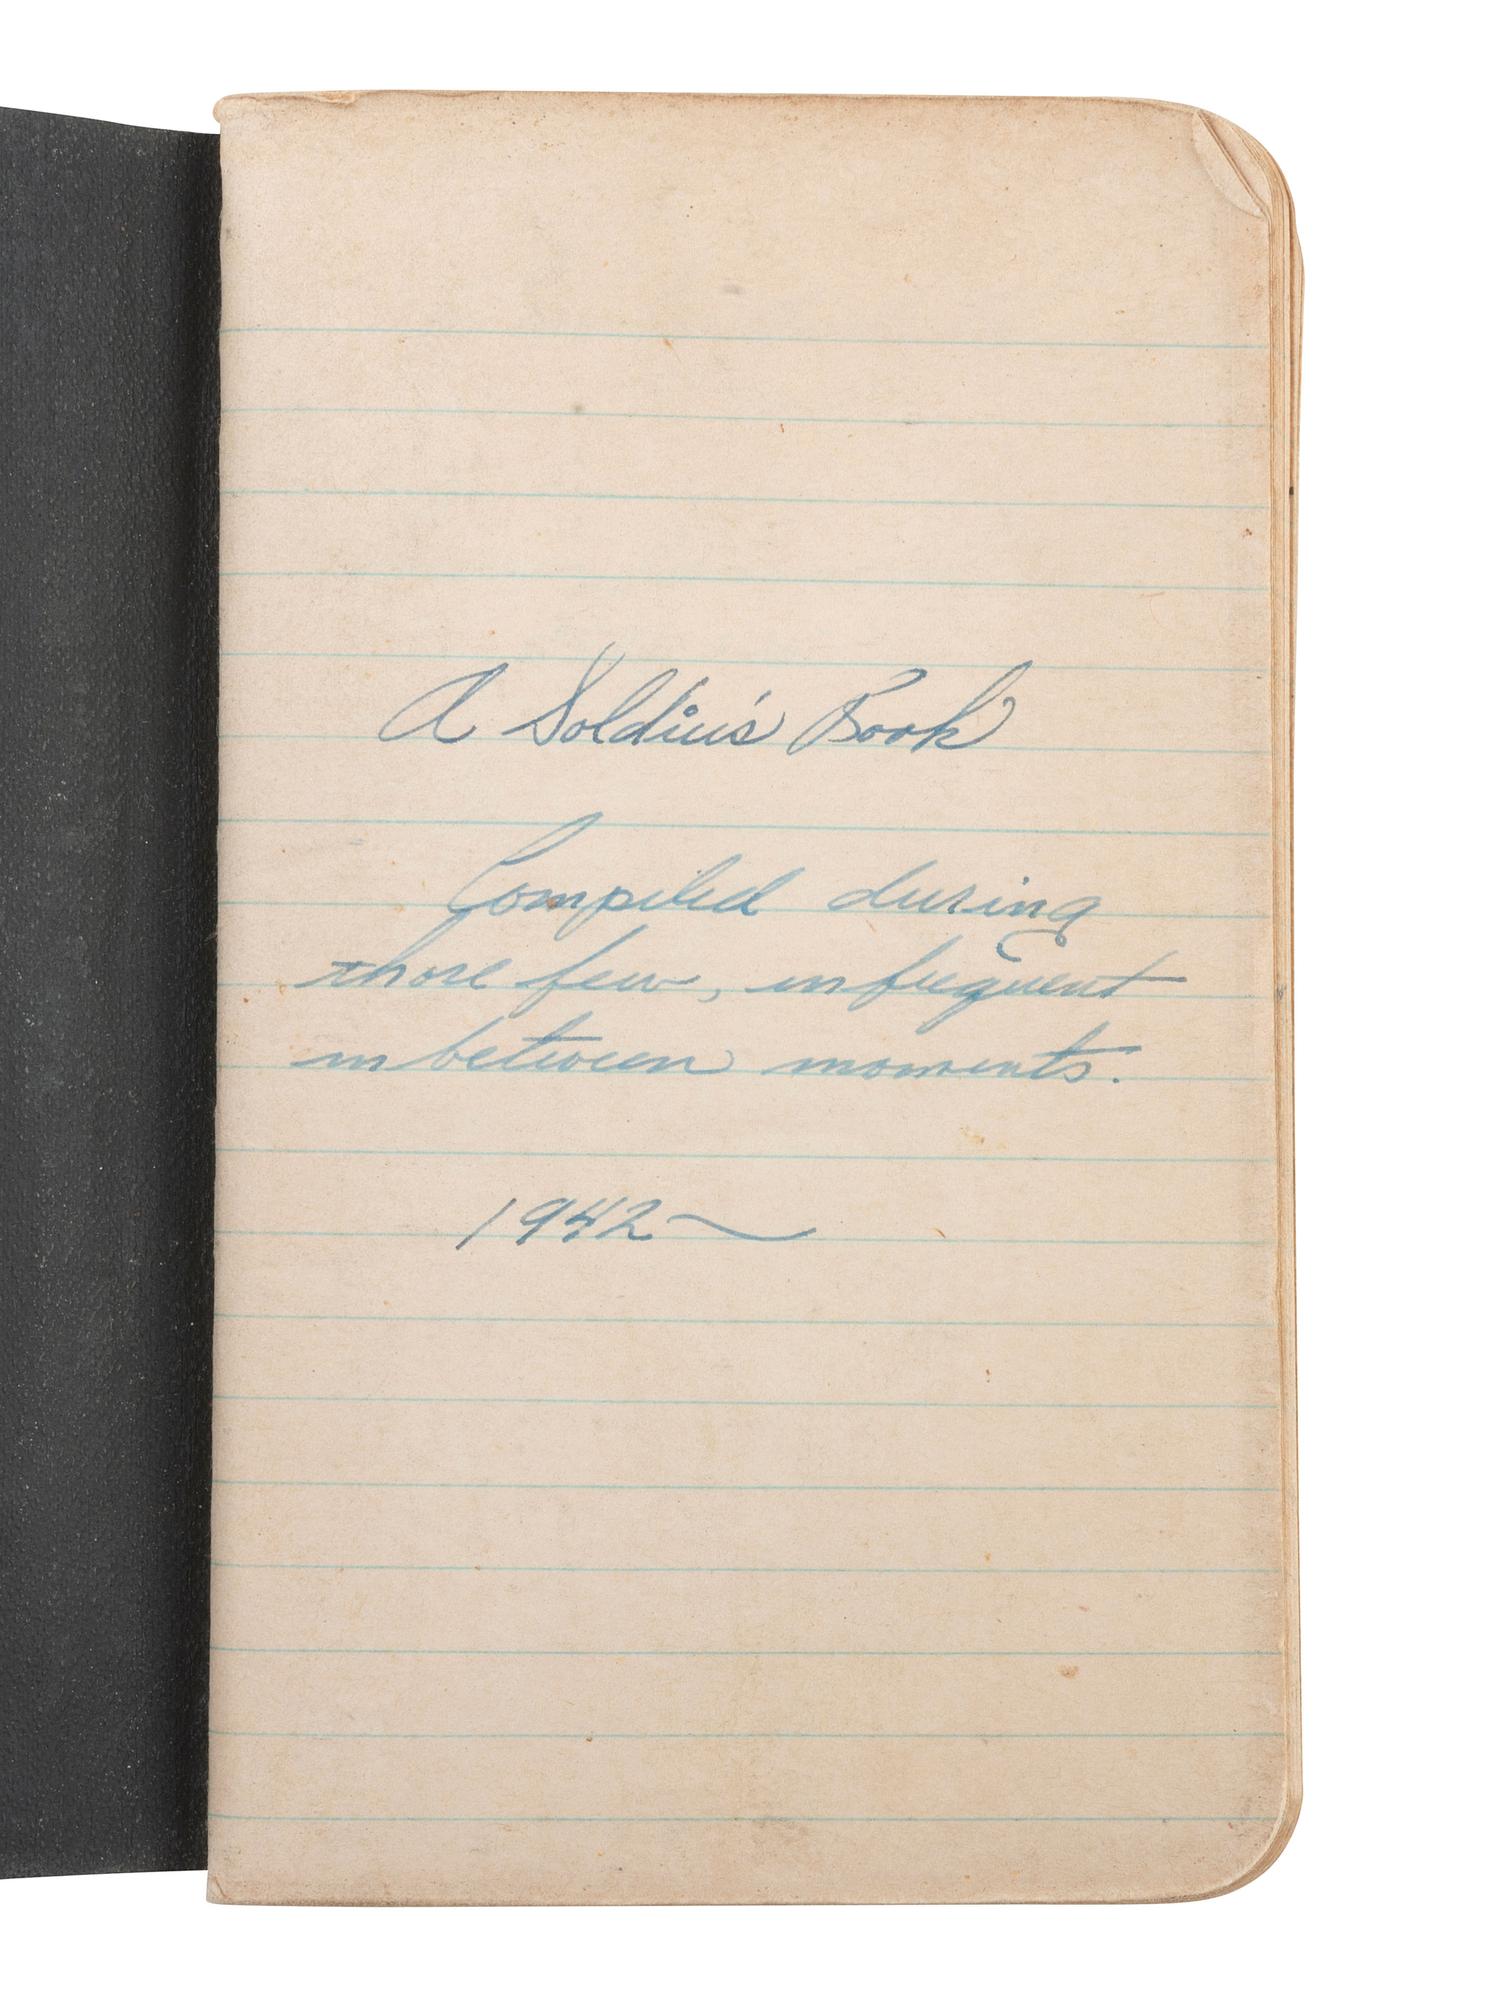 A Soldier's Book
Compiled during
those few, infrequent
in between moments.
1942~